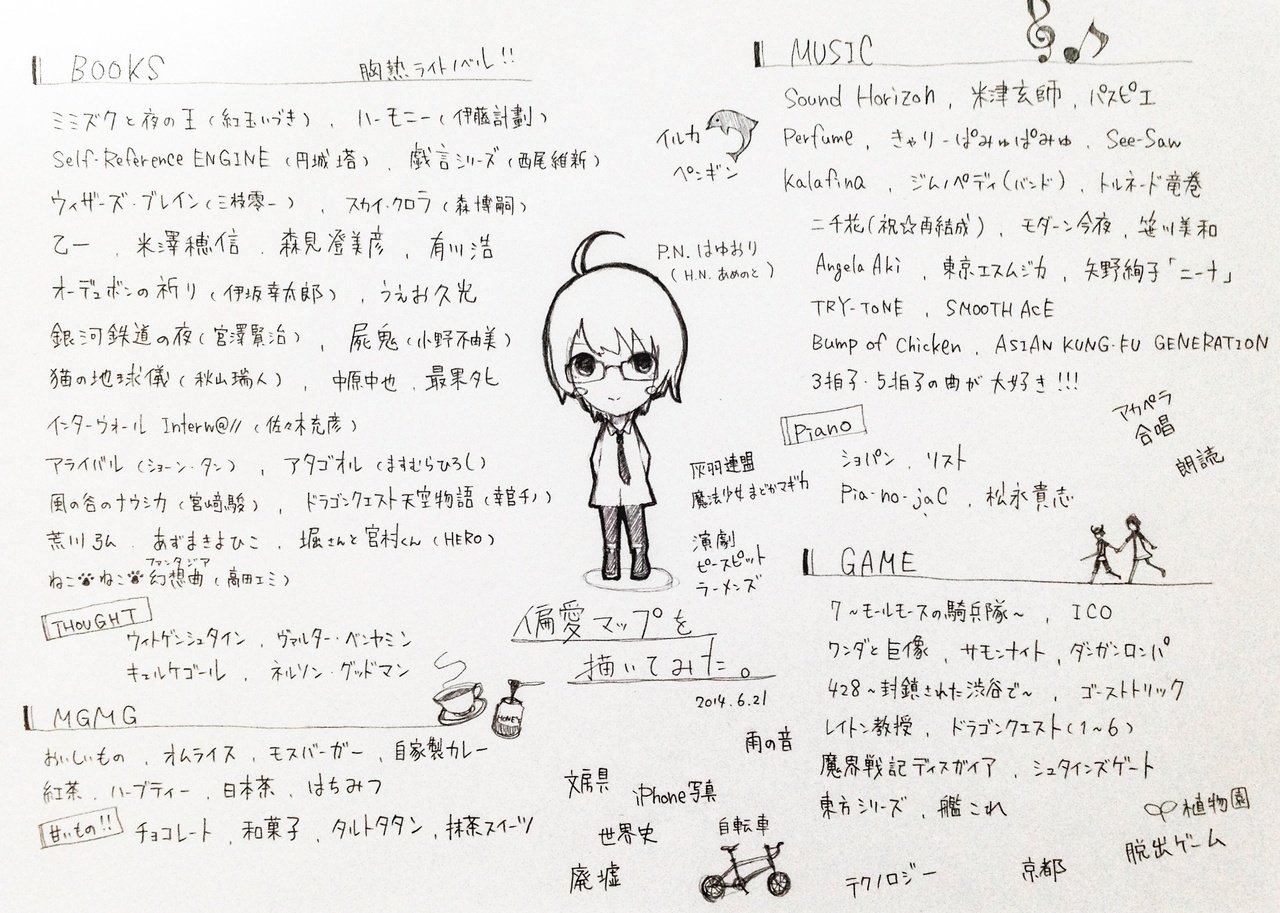 BOOKS 胸熱ライトノベル!!
ミミズクと夜の王(紅玉いづき)、ハーモニー(伊藤計劃)
Self-Reference ENGINE(円城塔)、戯言シリーズ(西尾維新)
ウィザーズ・ブレイン(三枝零一)、スカイ・クロラ(森博嗣)
乙一、米澤穂信、森見登美彦、有川浩
オーデュボンの祈り(伊坂幸太郎)、うえお久光
銀河鉄道の夜(宮澤賢治)、屍鬼(小野不由美)
猫の地球儀(秋山瑞人)、中原中也、最果タヒ
インターウォール Interw@//(佐々木充彦)
アライバル(ショーン・タン)、アタゴオル(ますむらひろし)
風の谷のナウシカ(宮崎駿)、ドラゴンクエスト天空物語(幸宮チノ)
荒川弘、あずまきよひこ、堀さんと宮村くん(HERO)
ファンタジア
ねこねこ幻想曲(高田エミ)
THOUGHT
ウィトゲンシュタイン、ヴァルター・ベンヤミン
キェルケゴール、ネルソン・グッドマン
HONEY
MGMG
おいしいもの、オムライス、モスバーガー、自家製カレー
紅茶、ハーブティー、日本茶、はちみつ
甘いもの!! チョコレート、和菓子、タルトタタン、抹茶スイーツ
イルカ
ペンギン
P.N. はゆおり
(H.N. あめのと)
灰羽連盟
魔法少女まどかマギカ
演劇
ピースピット
ラーメンズ
偏愛マップを
描いてみた。
2014.6.21
雨の音
文房具
iPhone写真
世界史
自転車
廃墟
MUSIC
Sound Horizon、米津玄師、パスピエ
Perfume、きゃりーぱみゅぱみゅ、See-Saw
Kalafina、ジムノペディ(バンド)、トルネード竜巻
二千花(祝☆再結成)、モダーン今夜、笹川美和
Angela Aki、東京エスムジカ、矢野絢子「ニーナ」
TRY-TONE、SMOOTH ACE
Bump of Chicken、ASIAN KUNG-FU GENERATION
3拍子・5拍子の曲が大好き!!!
アカペラ
合唱
朗読
Piano
ショパン、リスト
Pia-no-jaC、松永貴志
GAME
7〜モールモースの騎兵隊〜、ICO
ワンダと巨像、サモンナイト、ダンガンロンパ
428〜封鎖された渋谷で〜、ゴーストトリック
レイトン教授、ドラゴンクエスト(1〜6)
魔界戦記ディスガイア、シュタインズゲート
東方シリーズ、艦これ
植物園
脱出ゲーム
京都
テクノロジー